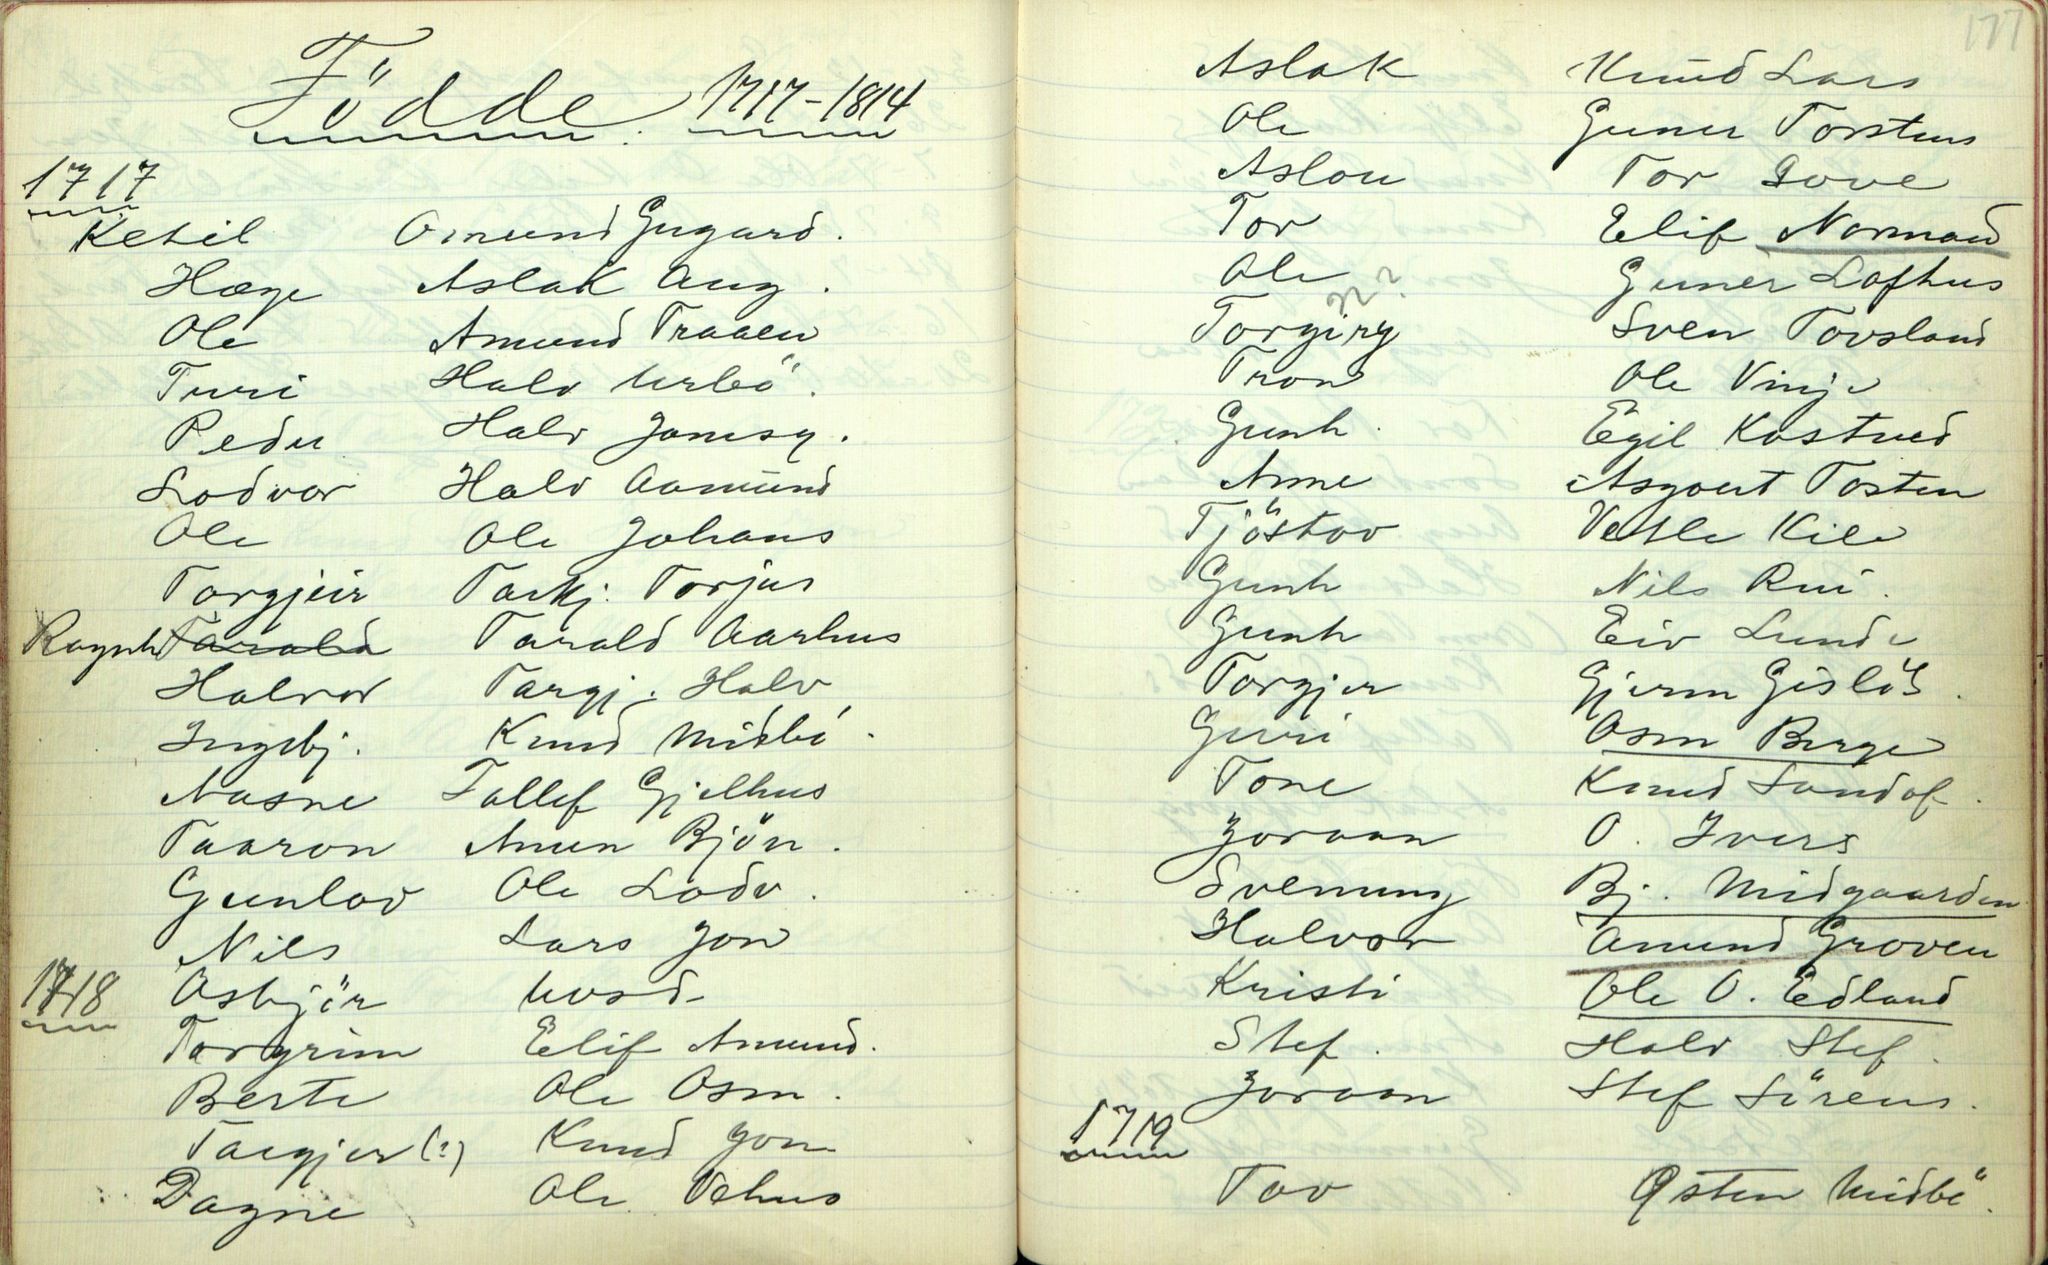 Födde 1717-1814
1717
Ketil Omund Gugard.
Hæge Aslak Aug.
Ole Amund Traaen
Turi Halv Urbö.
Peder Halv Jonsg.
Lodvor Halv Aamund
Ole Ole Johans
Torgjeir Torkj. Torjus
Ragnh Tarald Tarald Aarhus
Halvor Targj. Halv
Ingebj. Knud Midbö.
Aasne Tallef Gjelhus
Taaron Amun Bjön.
Gunlov Ole Lodv.
Nils Lars Jon
1718 Asbjör
Torgrim Elif Amund.
Berte Ole Osm.
Taegjer (?) Knud Jon
Dagne Ole Vehus
177
Aslak Knud Lars
Ole Guner Torstens
Aslou Tor Gove
Tor Elif Normand
Ole Guner Lofthus
Torgirg Sven Tovsland
Tron Ole Vinje
Gunh. Egil Kostved
Anne Asgout Tosten
Tjöstov Vetle Kile
Gunh Nils Rui.
Gunh Eiv Lunde
Torgjer Gjerm Gislös.
Guri Osm Berge
Tone Knud Sundof.
Joraan O. Ivers
Svenung Bj. Midgaarden
Halvor Amund Groven
Kristi Ole O. Edland
Stef. Halv Stef.
Joraan Stef Sörens.
1719
Tov Östen Midbö.